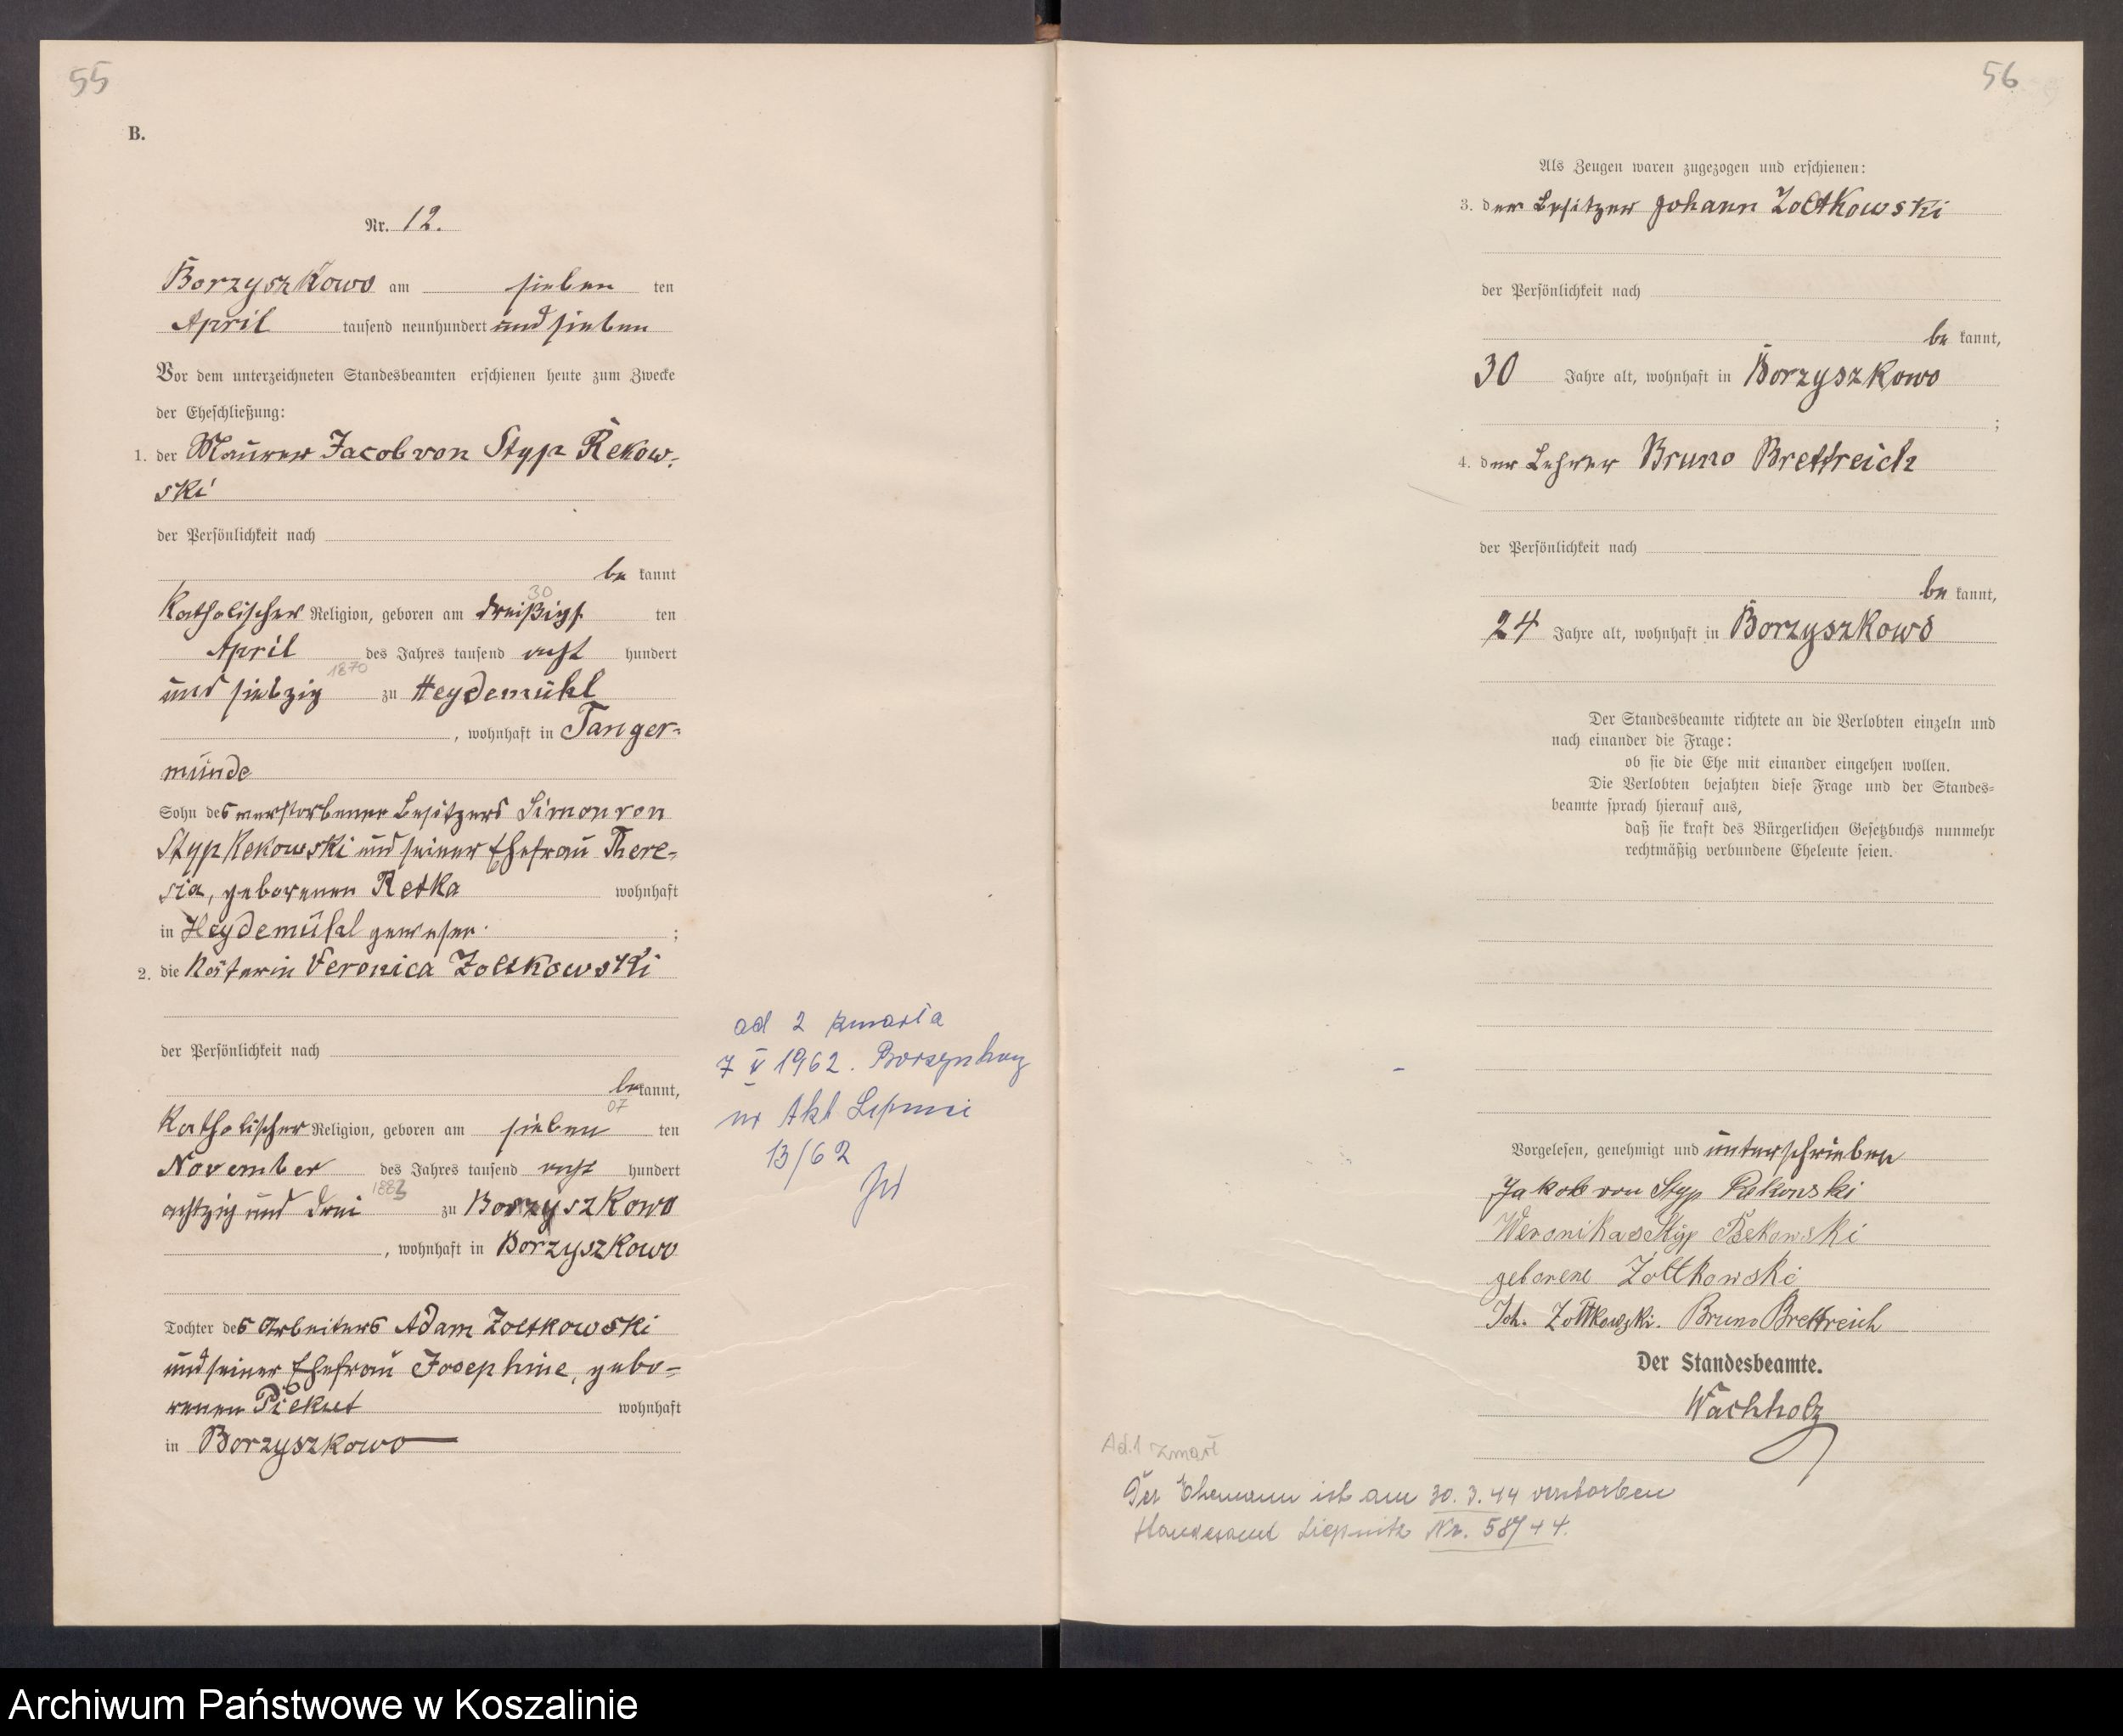 55
B.
Nr. 12.
Borzyszkowo am sieben ten
April tausend neunhundert und sieben
Vor dem unterzeichneten Standesbeamten erschienen heute zum Zwecke
der Eheschließung:
1. der Maurer Jacob von Styp Rekow-
ski
der Persönlichkeit nach
be kannt
Katholischer Religion, geboren am dreißigst ten
30
April des Jahres tausend acht hundert
1870
und siebzig zu Heydemühl
, wohnhaft in Tanger-
münde
Sohn des verstorbenen Besitzers Simon von
Styp Rekowski und seiner Ehefrau There-
sia, geborenen Retka wohnhaft
in Heydemühl gewesen ;
2. die Veronica Zoltkowski
der Persönlichkeit nach
be kannt,
07
Katholischer Religion, geboren am sieben ten
November des Jahres tausend acht hundert
1883
achtzig und drei zu Borzyszkowo
, wohnhaft in Borzyszkowo
Tochter des Arbeiters Adam Zoltkowski
und seiner Ehefrau Josephine, gebo-
renen Piekut wohnhaft
in Borzyszkowo
ad 2 zmarła
7 V 1962. Borzyszkowy
nr Akt Lipnica
13/62
56
Als Zeugen waren zugezogen und erschienen:
3. der Besitzer Johann Zoltkowski
der Persönlichkeit nach
be kannt,
30 Jahre alt, wohnhaft in Borzyszkowo
;
4. der Lehrer Bruno Brettreich
der Persönlichkeit nach
be kannt,
24 Jahre alt, wohnhaft in Borzyszkowo
Der Standesbeamte richtete an die Verlobten einzeln und
nach einander die Frage:
ob sie die Ehe mit einander eingehen wollen.
Die Verlobten bejahten diese Frage und der Standes=
beamte sprach hierauf aus,
daß sie kraft des Bürgerlichen Gesetzbuchs nunmehr
rechtmäßig verbundene Eheleute seien.
Vorgelesen, genehmigt und unterschrieben
Jakob von Styp Rekowski
Weronika Styp Rekowski
geborene Zoltkowski
Joh. Zoltkowski. Bruno Brettreich
Der Standesbeamte.
Wachholz
Ad. 1 zmarł
Der Ehemann ist am 30. 3. 44 verstorben
Standesamt Liepnitz Nr. 58/44.
Archiwum Państwowe w Koszalinie